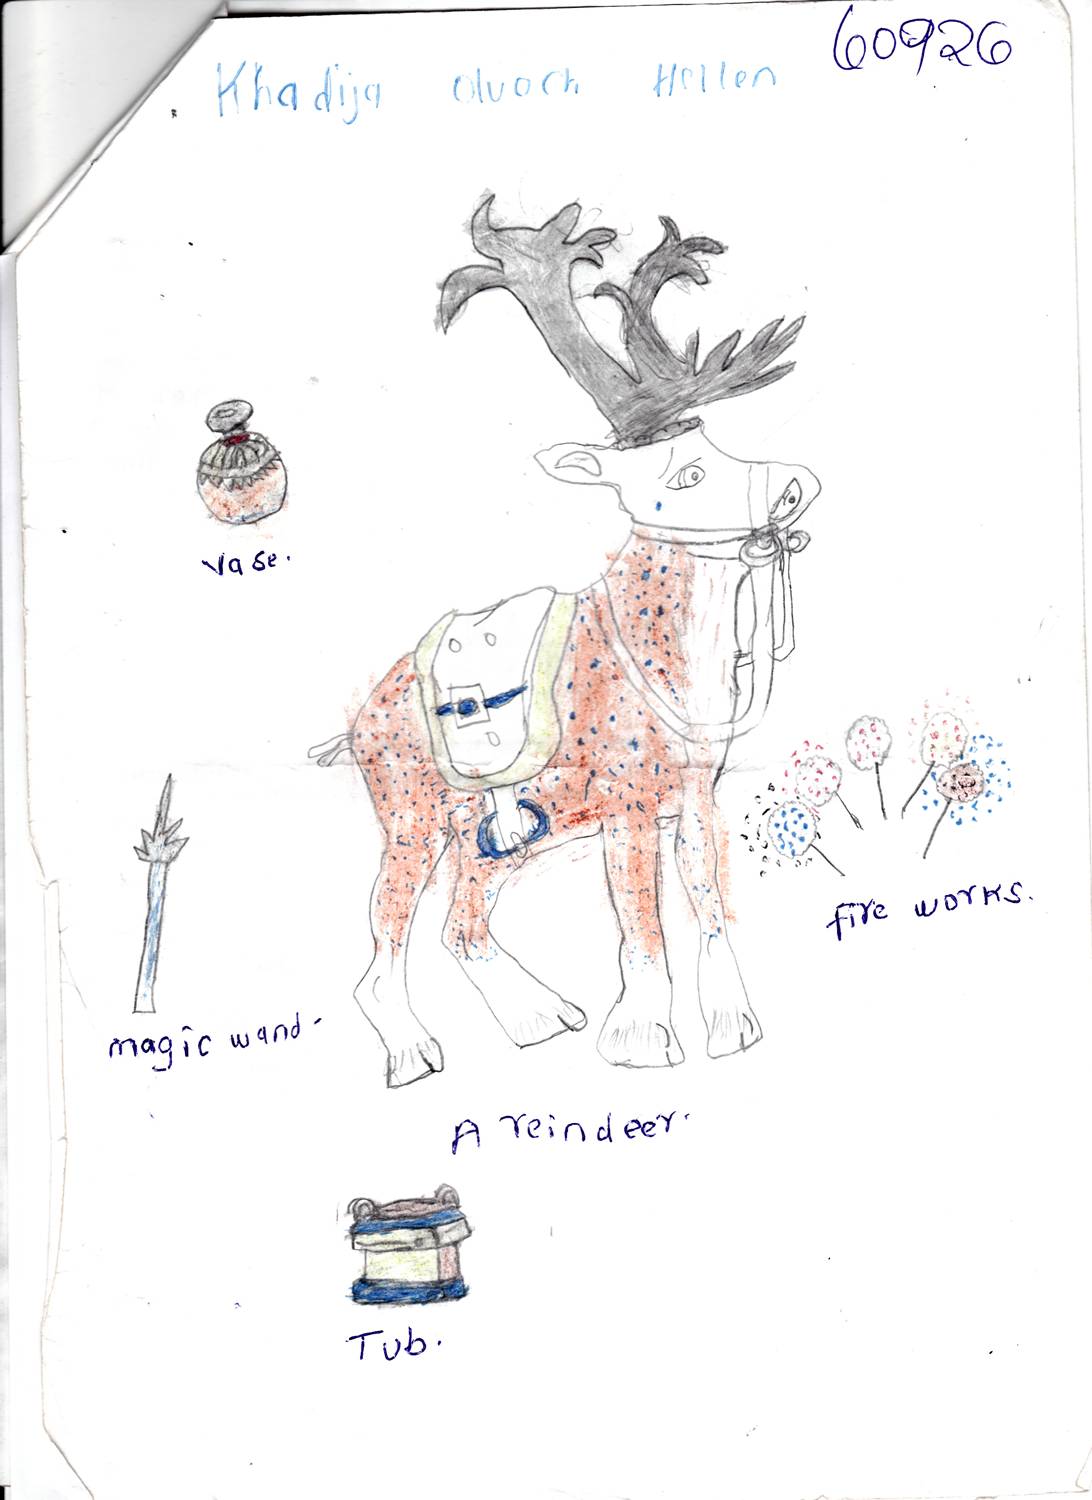 60926
Khadija Oluoch Hellen
vase.
fire works.
magic wand.
A reindeer.
Tub.